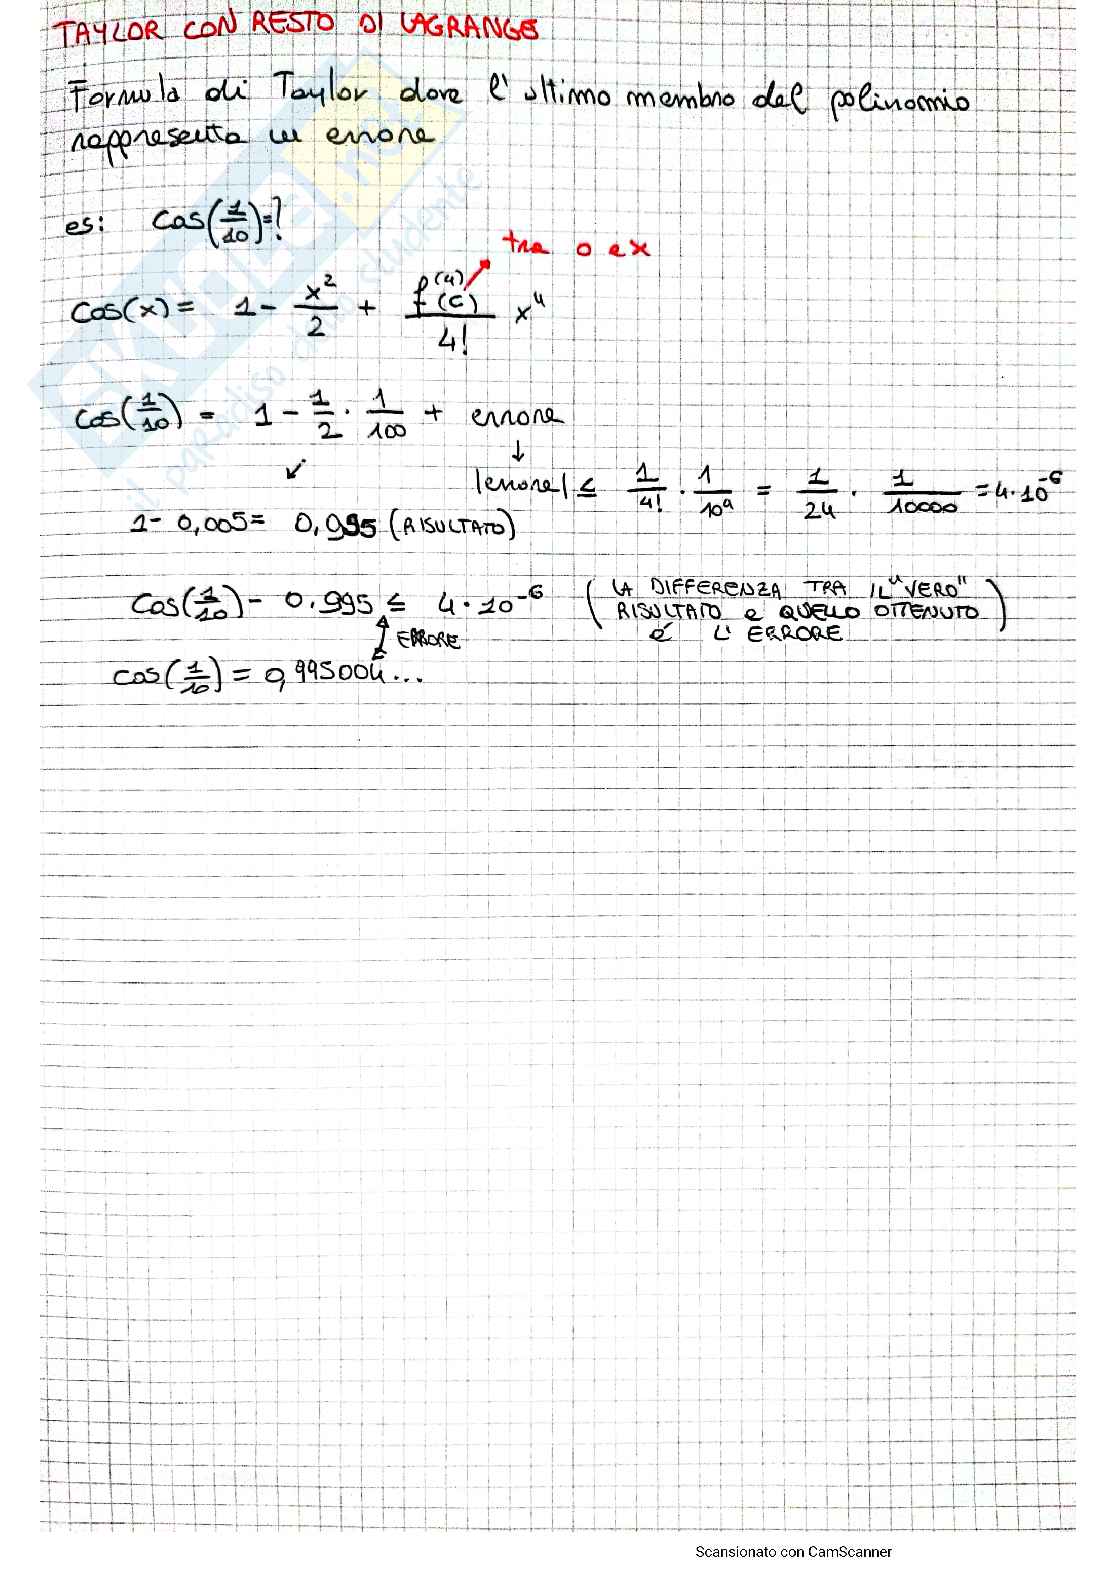 TAYLOR CON RESTO DI LAGRANGE
Formula di Taylor dove l'ultimo membro del polinomio
rappresenta un errore
es: cos(1/10)=?
tra 0 e x
cos(x) = 1 - x²/2 + f⁽⁴⁾(c)/4! x⁴
cos(1/10) = 1 - 1/2 · 1/100 + errore
↓
↙ |errore| ≤ 1/4! · 1/10⁴ = 1/24 · 1/10000 = 4·10⁻⁶
1 - 0,005 = 0,995 (RISULTATO)
cos(1/10) - 0.995 ≤ 4·10⁻⁶ (LA DIFFERENZA TRA IL "VERO"
RISULTATO e QUELLO OTTENUTO
É L'ERRORE)
ERRORE
cos(1/10) = 0,995004...
SKUOLA.net
il paradiso dello studente
Scansionato con CamScanner